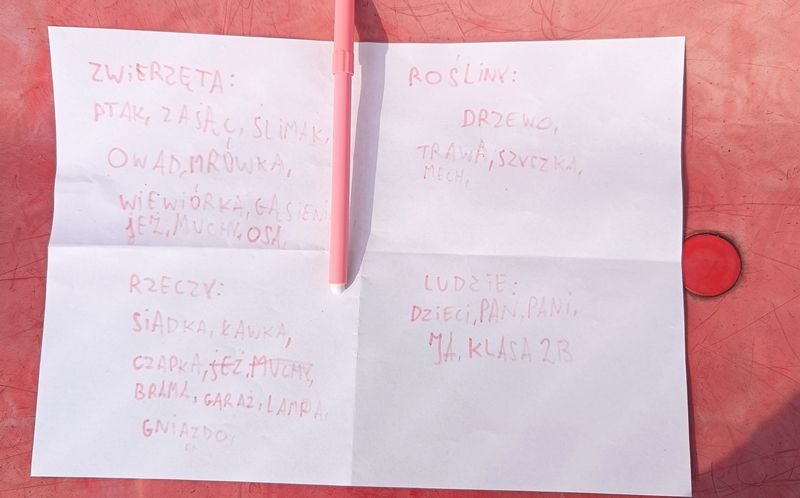 ZWIERZĘTA:
PTAK, ZAJĄC, ŚLIMAK,
OWAD, MRÓWKA,
WIEWIÓRKA, GĄSIENI
JEŻ, MUCHY, OSA,
ROŚLINY:
DRZEWO,
TRAWA, SZYSZKA,
MECH,
RZECZY:
SIADKA, ŁAWKA,
CZAPKA, JEŻ, MUCHY,
BRAMA, GARAŻ, LAMPA,
GNIAZDO,
LUDZIE:
DZIECI, PAN, PANI,
JA, KLASA 2B